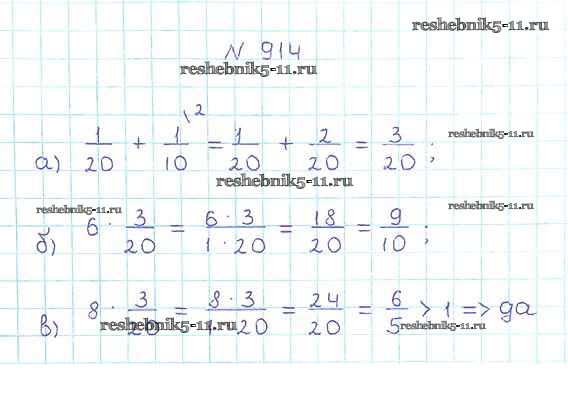 reshebnik5-11.ru
N 914
reshebnik5-11.ru
а) 1/20 + 1/10 \2 = 1/20 + 2/20 = 3/20 ;
reshebnik5-11.ru
reshebnik5-11.ru
reshebnik5-11.ru
reshebnik5-11.ru
б) 6 · 3/20 = 6 · 3/1 · 20 = 18/20 = 9/10 ;
в) 8 · 3/20 = 8 · 3/1 · 20 = 24/20 = 6/5 > 1 => да
reshebnik5-11.ru
reshebnik5-11.ru